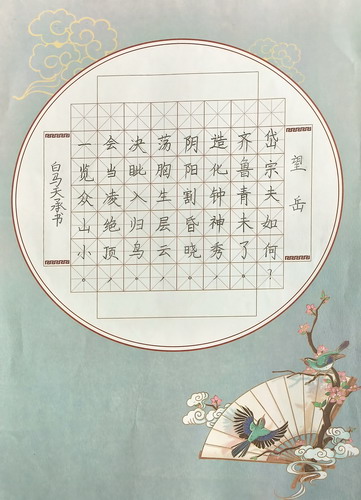 望岳
岱宗夫如何？
齐鲁青未了。
造化钟神秀，
阴阳割昏晓。
荡胸生层云，
决眦入归鸟。
会当凌绝顶，
一览众山小。
白马天承书